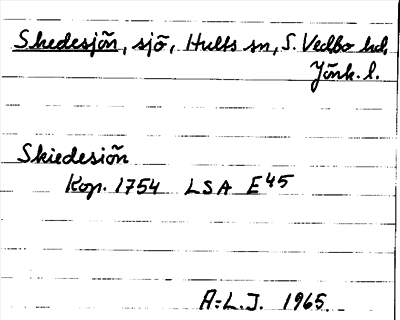 Skedesjön, sjö, Hults sn, S. Vedbo hd,
Jönk. l.
Skiedesiön
Kop. 1754 LSA E45
A-L.J. 1965.